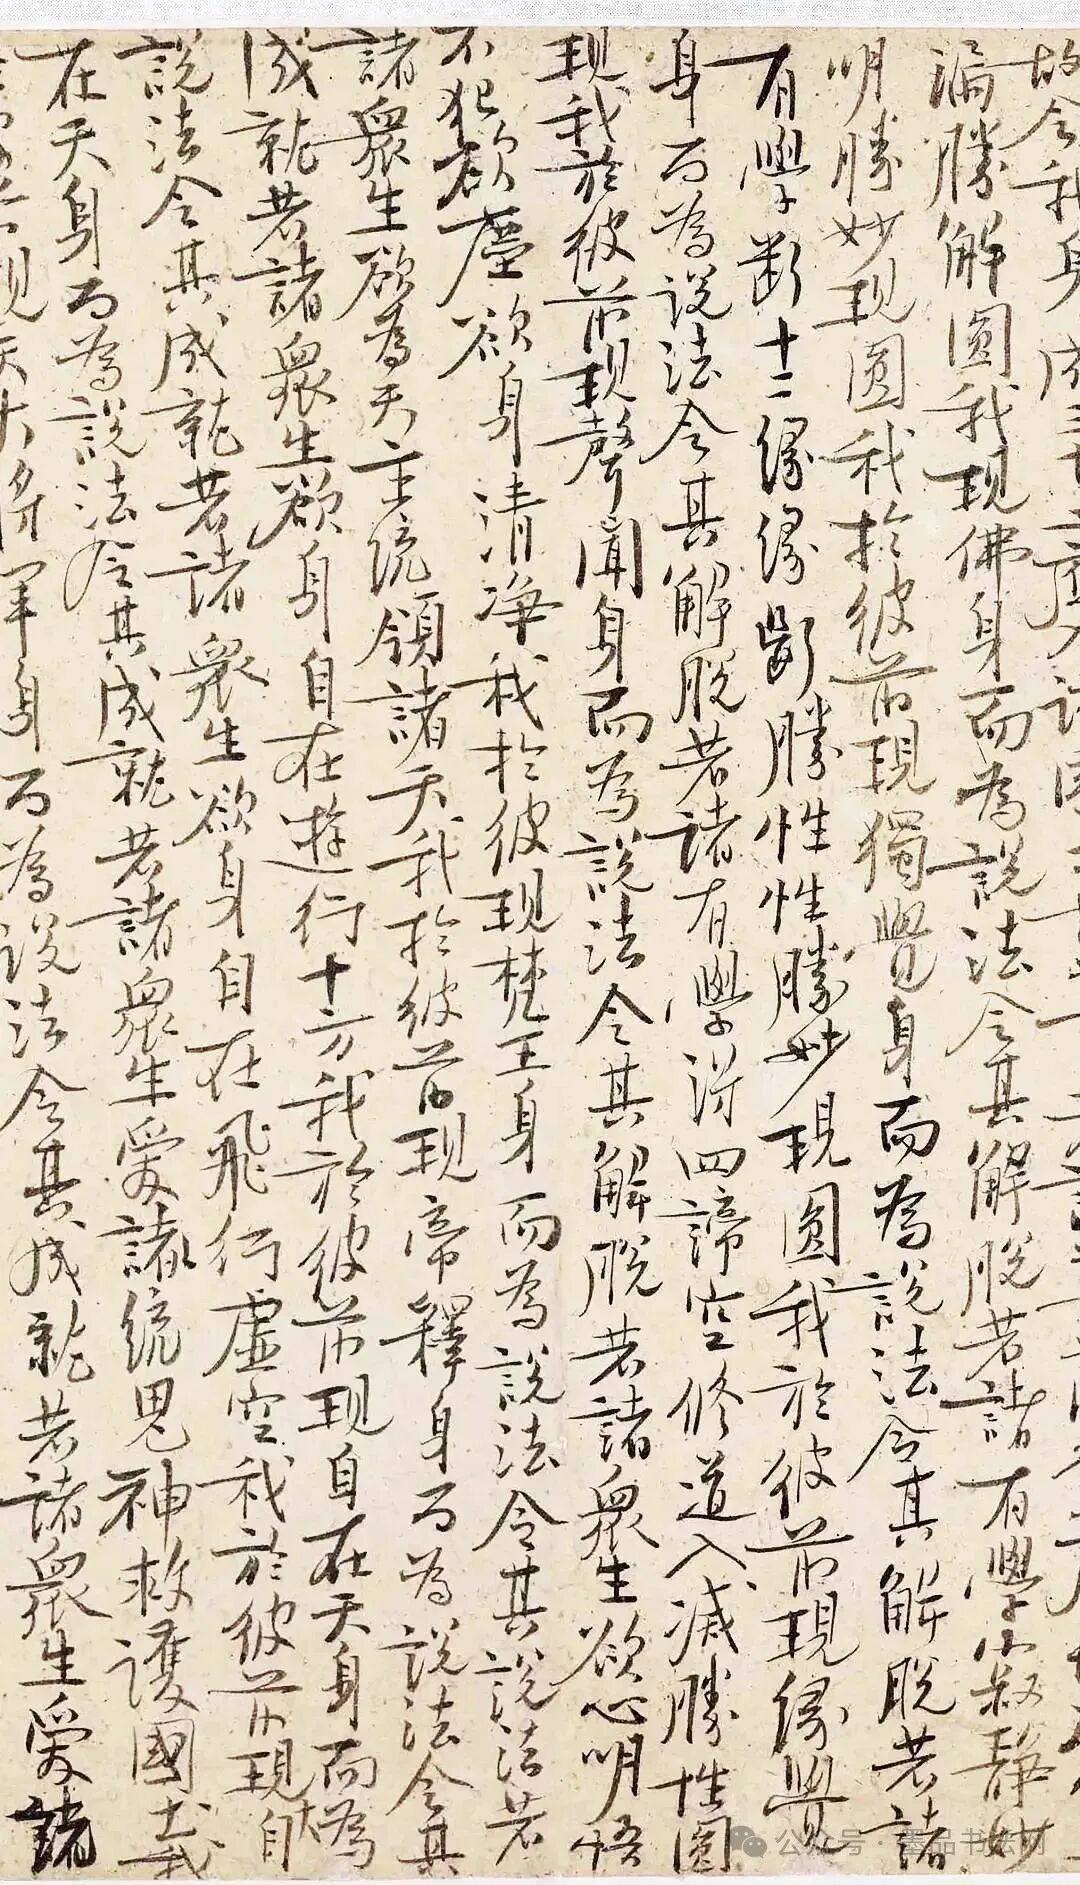 故令我身成三十二應入諸國
漏勝解圓我現佛身而為說法令其解脫若諸有學寂靜妙
明勝妙現圓我於彼前現獨覺身而為說法令其解脫若諸
有學斷十二緣緣斷勝性性勝妙現圓我於彼前現緣覺
身而為說法令其解脫若諸有學得四諦空修道入滅勝性圓
現我於彼前現聲聞身而為說法令其解脫若諸眾生欲心明悟
不犯欲塵欲身清淨我於彼現梵王身而為說法令其說法若
諸眾生欲為天主統領諸天我於彼前現帝釋身而為說法令其
成就若諸眾生欲身自在遊行十方我於彼前現自在天身而為
說法令其成就若諸眾生欲身自在飛行虛空我於彼前現大自
在天身而為說法令其成就若諸眾生愛諸統鬼神救護國土我
現天大將軍身而為說法令其成就若諸眾生愛諸
公众号·墨品书法网